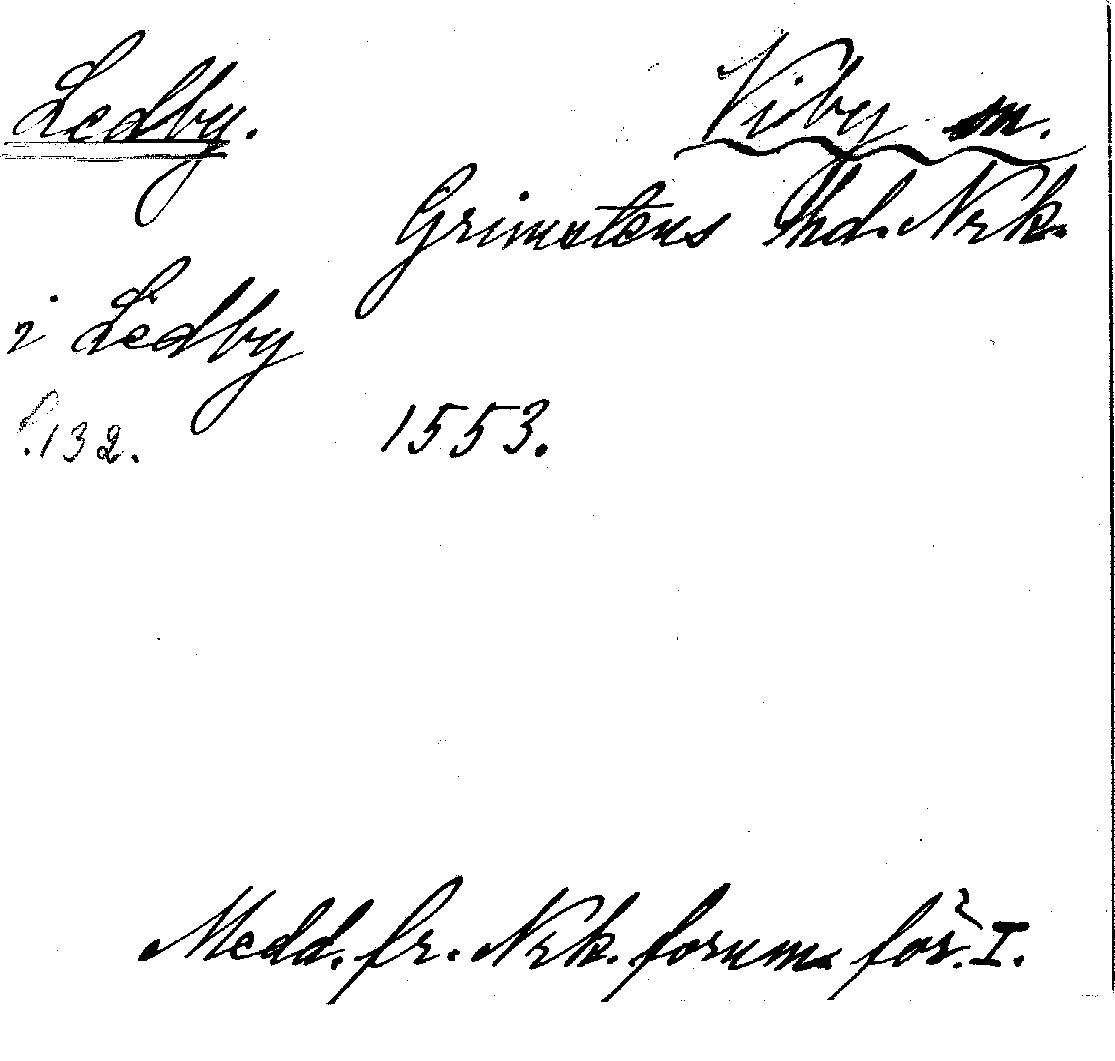 Ledby. Viby sn.
Grimstens hd. Nrk.
i Ledby
s. 132. 1553.
Medd. fr. Nrk. fornm. för. I.